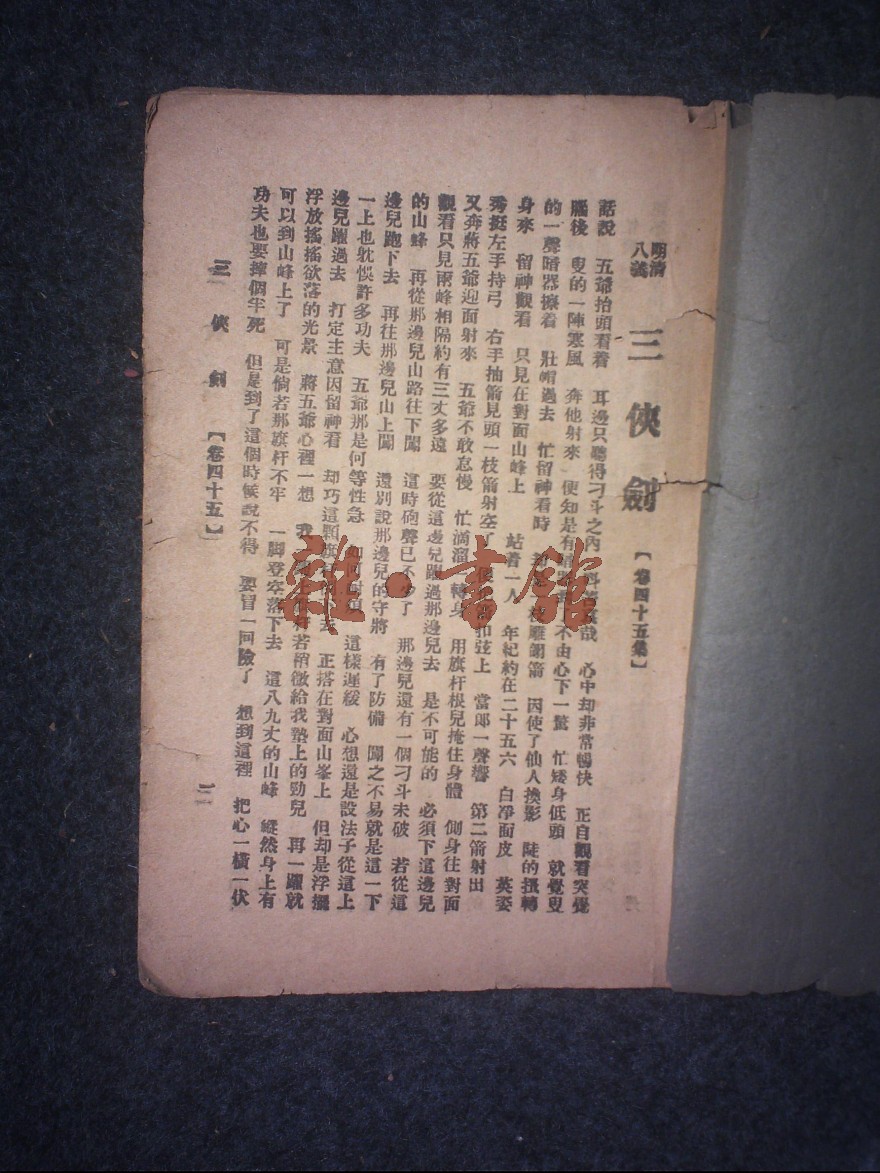 明清
八義
三俠劍
【卷四十五集】
話說 五爺抬頭看着 耳邊只聽得刁斗之內 心中却非常暢快 正自觀看突覺
腦後 叟的一陣寒風 奔他射來 便知是有 不由心下一驚 忙矮身低頭 就覺叟
的一聲暗器擦着 壯帽過去 忙留神看時 枝雕翎箭 因使了仙人換影 陡的扭轉
身來 留神觀看 只見在對面山峰上 站着一人 年紀約在二十五六 白净面皮 英姿
秀挺左手持弓 右手抽箭見頭一枝箭射空了 扣弦上 當郎一聲響 第二箭射出
又奔蔣五爺迎面射來 五爺不敢怠慢 忙滴溜一轉身 用旗杆根兒掩住身體 側身往對面
觀看只見兩峰相隔約有三丈多遠 要從這邊兒躍過那邊兒去 是不可能的 必須下這邊兒
的山峰 再從那邊兒山路往下闖 這時砲聲已 了 那邊兒還有一個刁斗未破 若從這
邊兒跑下去 再往那邊兒山上闖 還別說那邊兒的守將 有了防備 闖之不易就是這一下
一上也躭悞許多功夫 五爺那是何等性急 如何耐煩 這樣遲緩 心想還是設法子從這上
邊兒躍過去 打定主意因留神看 却巧這顆旗 去 正搭在對面山峯上 但却是浮擺
浮放搖搖欲落的光景 蔣五爺心裡一想 我 若稍微給我墊上的勁兒 再一躍就
可以到山峰上了 可是倘若那旗杆不牢 一脚登空落下去 這八九丈的山峰 縱然身上有
功夫也要摔個半死 但是到了這個時候說不得 要冒一回險了 想到這裡 把心一橫一伏
三俠劍
【卷四十五】
一
雜·書館